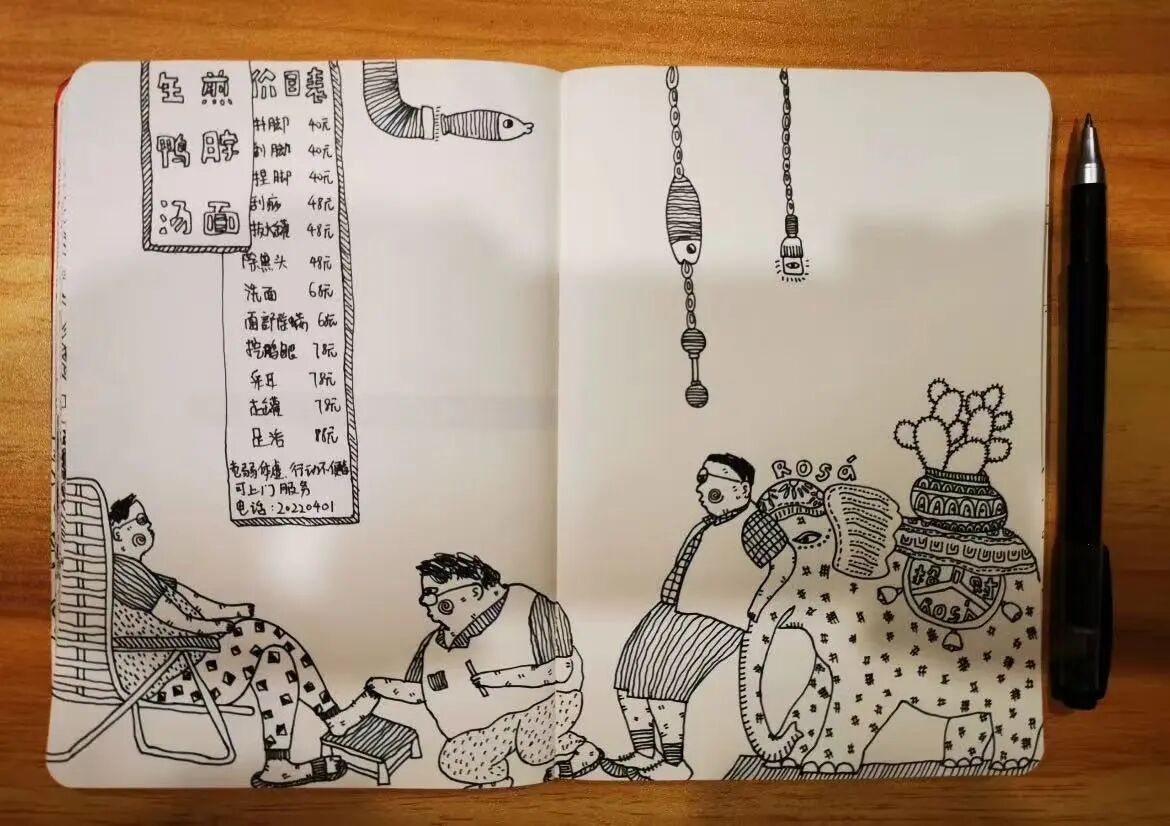 生煎
鸭脖
汤面
价目表
修脚 40元
刮脚 40元
捏脚 40元
刮痧 48元
拔火罐 48元
除黑头 48元
洗面 68元
面部除螨 68元
挖鸡眼 78元
采耳 78元
走罐 78元
足浴 88元
老弱体虚 行动不便者
可上门服务
电话：20220401
ROSá
招财
ROSá